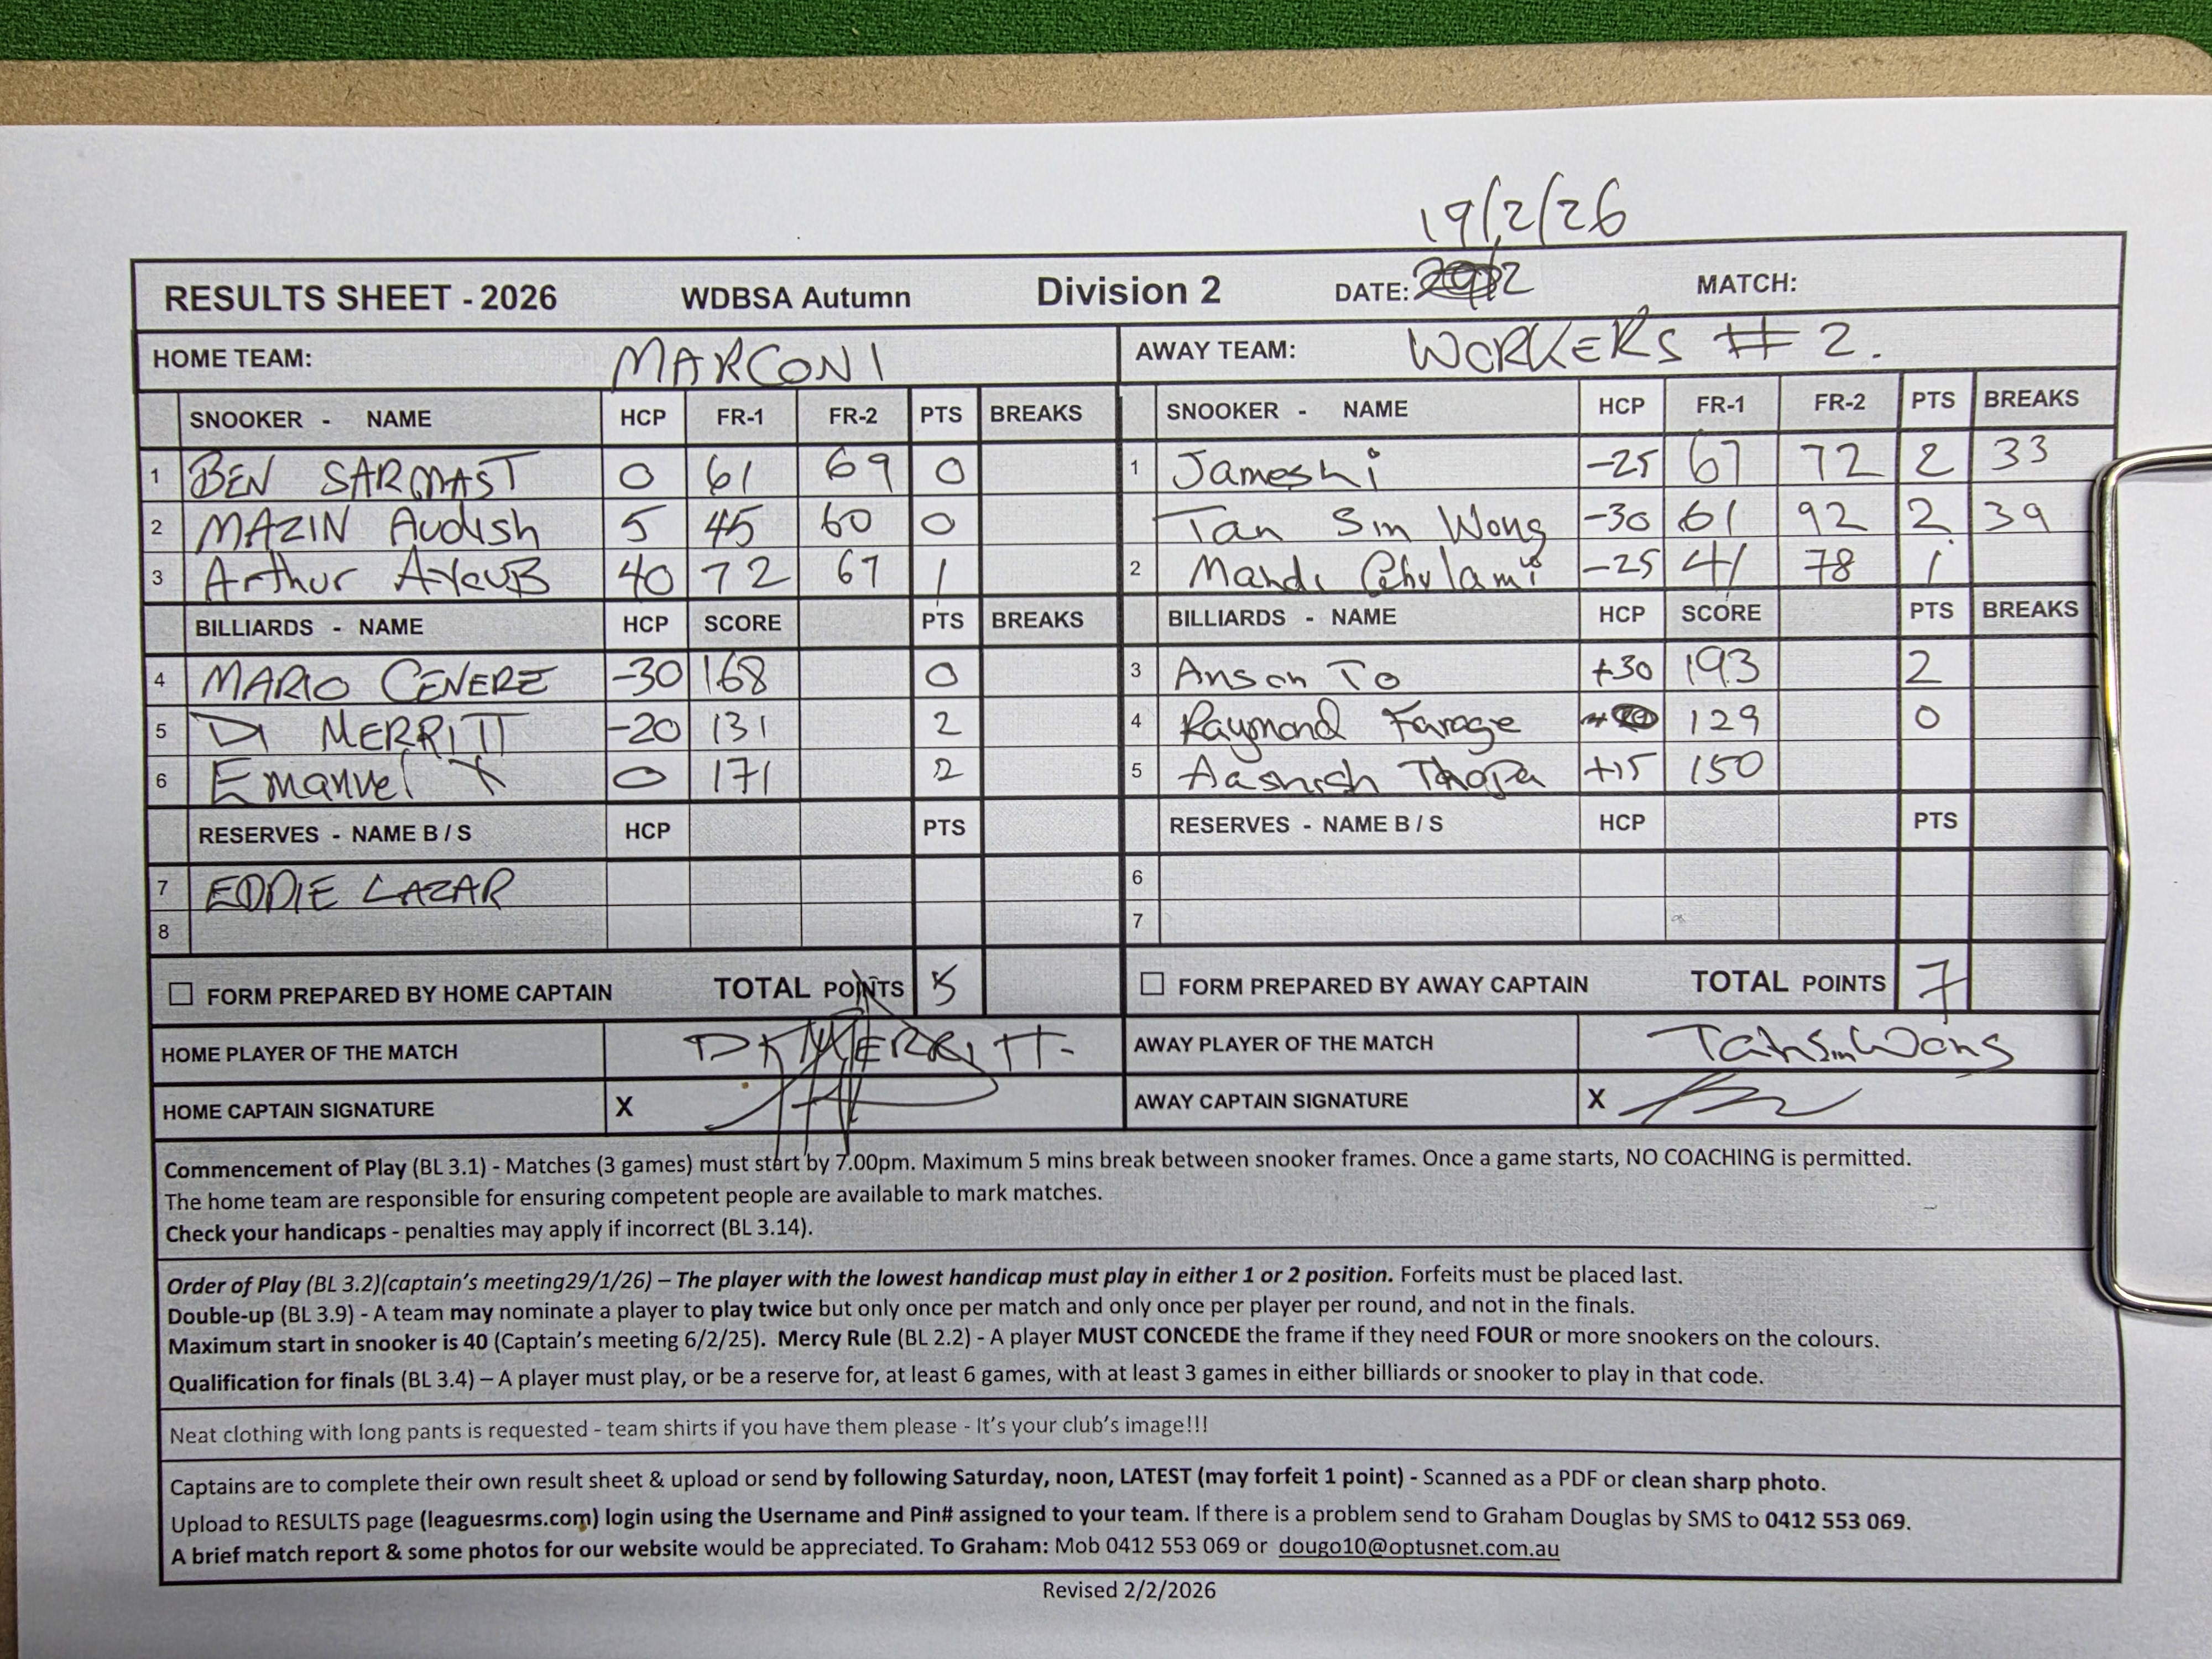 19/2/26
RESULTS SHEET - 2026 WDBSA Autumn Division 2 DATE: MATCH:
HOME TEAM: MARCONI AWAY TEAM: WORKERS # 2.
SNOOKER - NAME HCP FR-1 FR-2 PTS BREAKS SNOOKER - NAME HCP FR-1 FR-2 PTS BREAKS
1 BEN SARMAST 0 61 69 0 1 Jameshi -25 67 72 2 33
2 MAZIN Audish 5 45 60 0 Tan Sin Wong -30 61 92 2 39
3 Arthur AYouB 40 72 67 1 2 Mahdi Ghulami -25 41 78 1
BILLIARDS - NAME HCP SCORE PTS BREAKS BILLIARDS - NAME HCP SCORE PTS BREAKS
4 MARIO CENERE -30 168 0 3 Anson To +30 193 2
5 DI MERRITT -20 131 2 4 Raymond Farage 129 0
6 Emanuel X 0 171 2 5 Aashish Thapa +15 150
RESERVES - NAME B / S HCP PTS RESERVES - NAME B / S HCP PTS
7 EDDIE LAZAR 6
8 7
FORM PREPARED BY HOME CAPTAIN TOTAL POINTS 5 FORM PREPARED BY AWAY CAPTAIN TOTAL POINTS 7
HOME PLAYER OF THE MATCH DI MERRITT AWAY PLAYER OF THE MATCH Tan Sin Wong
HOME CAPTAIN SIGNATURE X AWAY CAPTAIN SIGNATURE X
Commencement of Play (BL 3.1) - Matches (3 games) must start by 7.00pm. Maximum 5 mins break between snooker frames. Once a game starts, NO COACHING is permitted.
The home team are responsible for ensuring competent people are available to mark matches.
Check your handicaps - penalties may apply if incorrect (BL 3.14).
Order of Play (BL 3.2)(captain's meeting29/1/26) – The player with the lowest handicap must play in either 1 or 2 position. Forfeits must be placed last.
Double-up (BL 3.9) - A team may nominate a player to play twice but only once per match and only once per player per round, and not in the finals.
Maximum start in snooker is 40 (Captain's meeting 6/2/25). Mercy Rule (BL 2.2) - A player MUST CONCEDE the frame if they need FOUR or more snookers on the colours.
Qualification for finals (BL 3.4) – A player must play, or be a reserve for, at least 6 games, with at least 3 games in either billiards or snooker to play in that code.
Neat clothing with long pants is requested - team shirts if you have them please - It's your club's image!!!
Captains are to complete their own result sheet & upload or send by following Saturday, noon, LATEST (may forfeit 1 point) - Scanned as a PDF or clean sharp photo.
Upload to RESULTS page (leaguesrms.com) login using the Username and Pin# assigned to your team. If there is a problem send to Graham Douglas by SMS to 0412 553 069.
A brief match report & some photos for our website would be appreciated. To Graham: Mob 0412 553 069 or dougo10@optusnet.com.au
Revised 2/2/2026